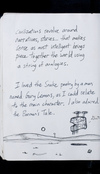 Civilisations revolve around
narratives, stories... that makes
sense as most intelligent beings
piece together the world using
a string of analogies.
I liked the Snake, poetry by a man
named Gary Lemons, as I could relate
to the main character, I also adored
the Barman's Tale.